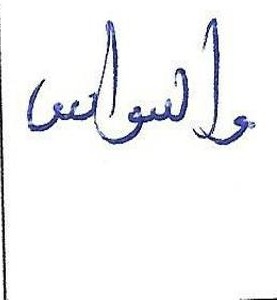 والسواس